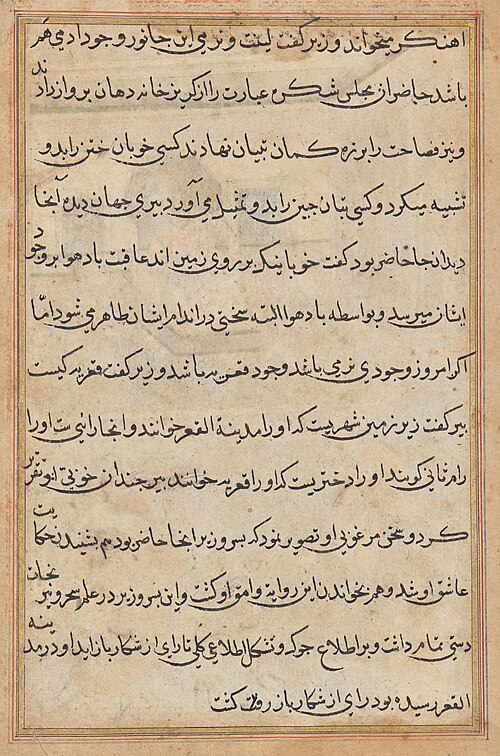 اهنگر میخواند وزیر گفت لینت و نرمی این جانور وجود ادمی هم
باشد حاضر از مجلس شکره عبارت را از کریز خانه دهان پرواز دادند
و تیر فصاحت را بر زه کمان بیان نهادند کسی خوبان ختن را بدو
تشبیه میکرد و کسی بتان چین را بدو تمثیل می آورد پیری جهان دیده آنجا
دیدان جا حاضر بود گفت خوبانیکه بر روی زمین اند عاقبت باد هوا بر وجود
ایشان میرسد و بواسطه باد هوا البته سختی در اندام ایشان ظاهر می شود امّا
اکر امروز وجودی نرمی باشد وجود قعریه باشد وزیر گفت قعریه کیست
پیر گفت زیر زمین شهریست که اورا مدینة القعر خوانند و انجا رائی ست اورا
رام ثانی کویند اورا دختریست که اورا قعریه خوانند پیر چندان خوبی او تقریر
کرد و سخن مرغوبی او تصویر نمود که پسر وزیر انجا حاضر بود هم بشنیدن حکایت
عاشق او شد و هم بخواندن این روایت وامق او گشت و این پسر وزیر در علم سحر و نیرنجات
دستی تمام داشت و بر اطلاع جوکه و تشکل اطلاع کلی تا رای از شکار باز اید او در مدینه
القعر رسیده بود رای از شکار باز گشت